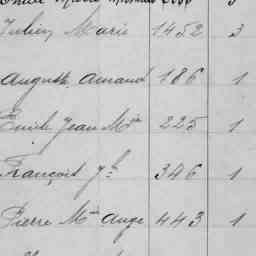 Julien Marie 1452 3
Auguste Amand 186 1
Emile Jean M^ie 225 1
François J^h 346 1
Pierre M^ie Ange 443 1